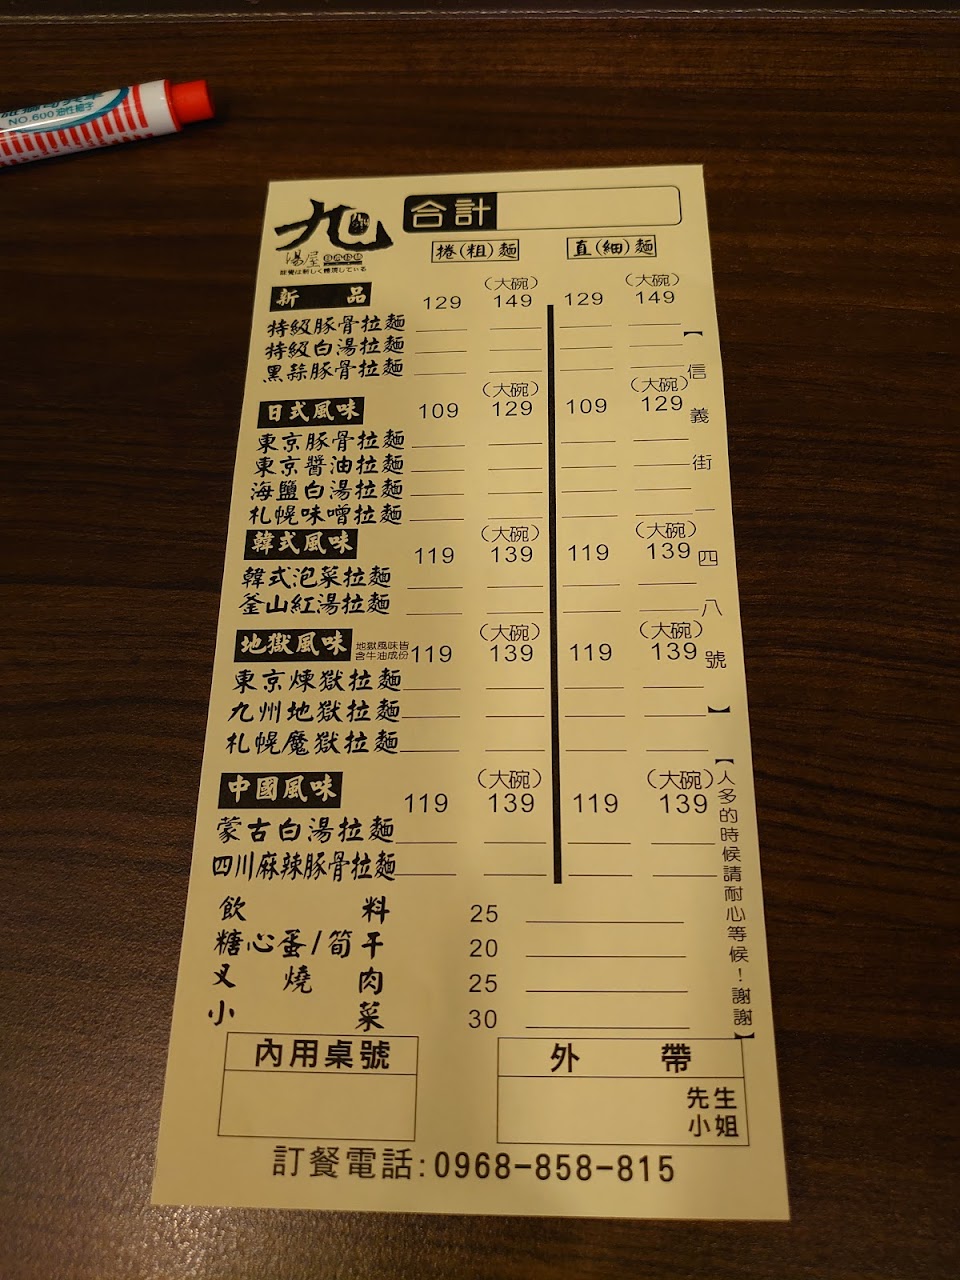 NO.600油性細字
九
湯屋
合計
捲(粗)麵 直(細)麵
(大碗) (大碗)
新品 129 149 129 149
特級豚骨拉麵
特級白湯拉麵
黑蒜豚骨拉麵
(大碗) (大碗)
日式風味 109 129 109 129
東京豚骨拉麵
東京醬油拉麵
海鹽白湯拉麵
札幌味噌拉麵
(大碗) (大碗)
韓式風味 119 139 119 139
韓式泡菜拉麵
釜山紅湯拉麵
(大碗) (大碗)
地獄風味 地獄風味皆 119 139 119 139
含牛油成份
東京煉獄拉麵
九州地獄拉麵
札幌魔獄拉麵
(大碗) (大碗)
中國風味 119 139 119 139
蒙古白湯拉麵
四川麻辣豚骨拉麵
飲料 25
糖心蛋/筍干 20
叉燒肉 25
小菜 30
【信義街一四八號】
【人多的時候請耐心等候!謝謝】
內用桌號
外帶
先生
小姐
訂餐電話:0968-858-815